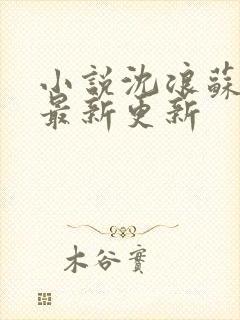 小說沈浪蘇
最新更新
木谷實